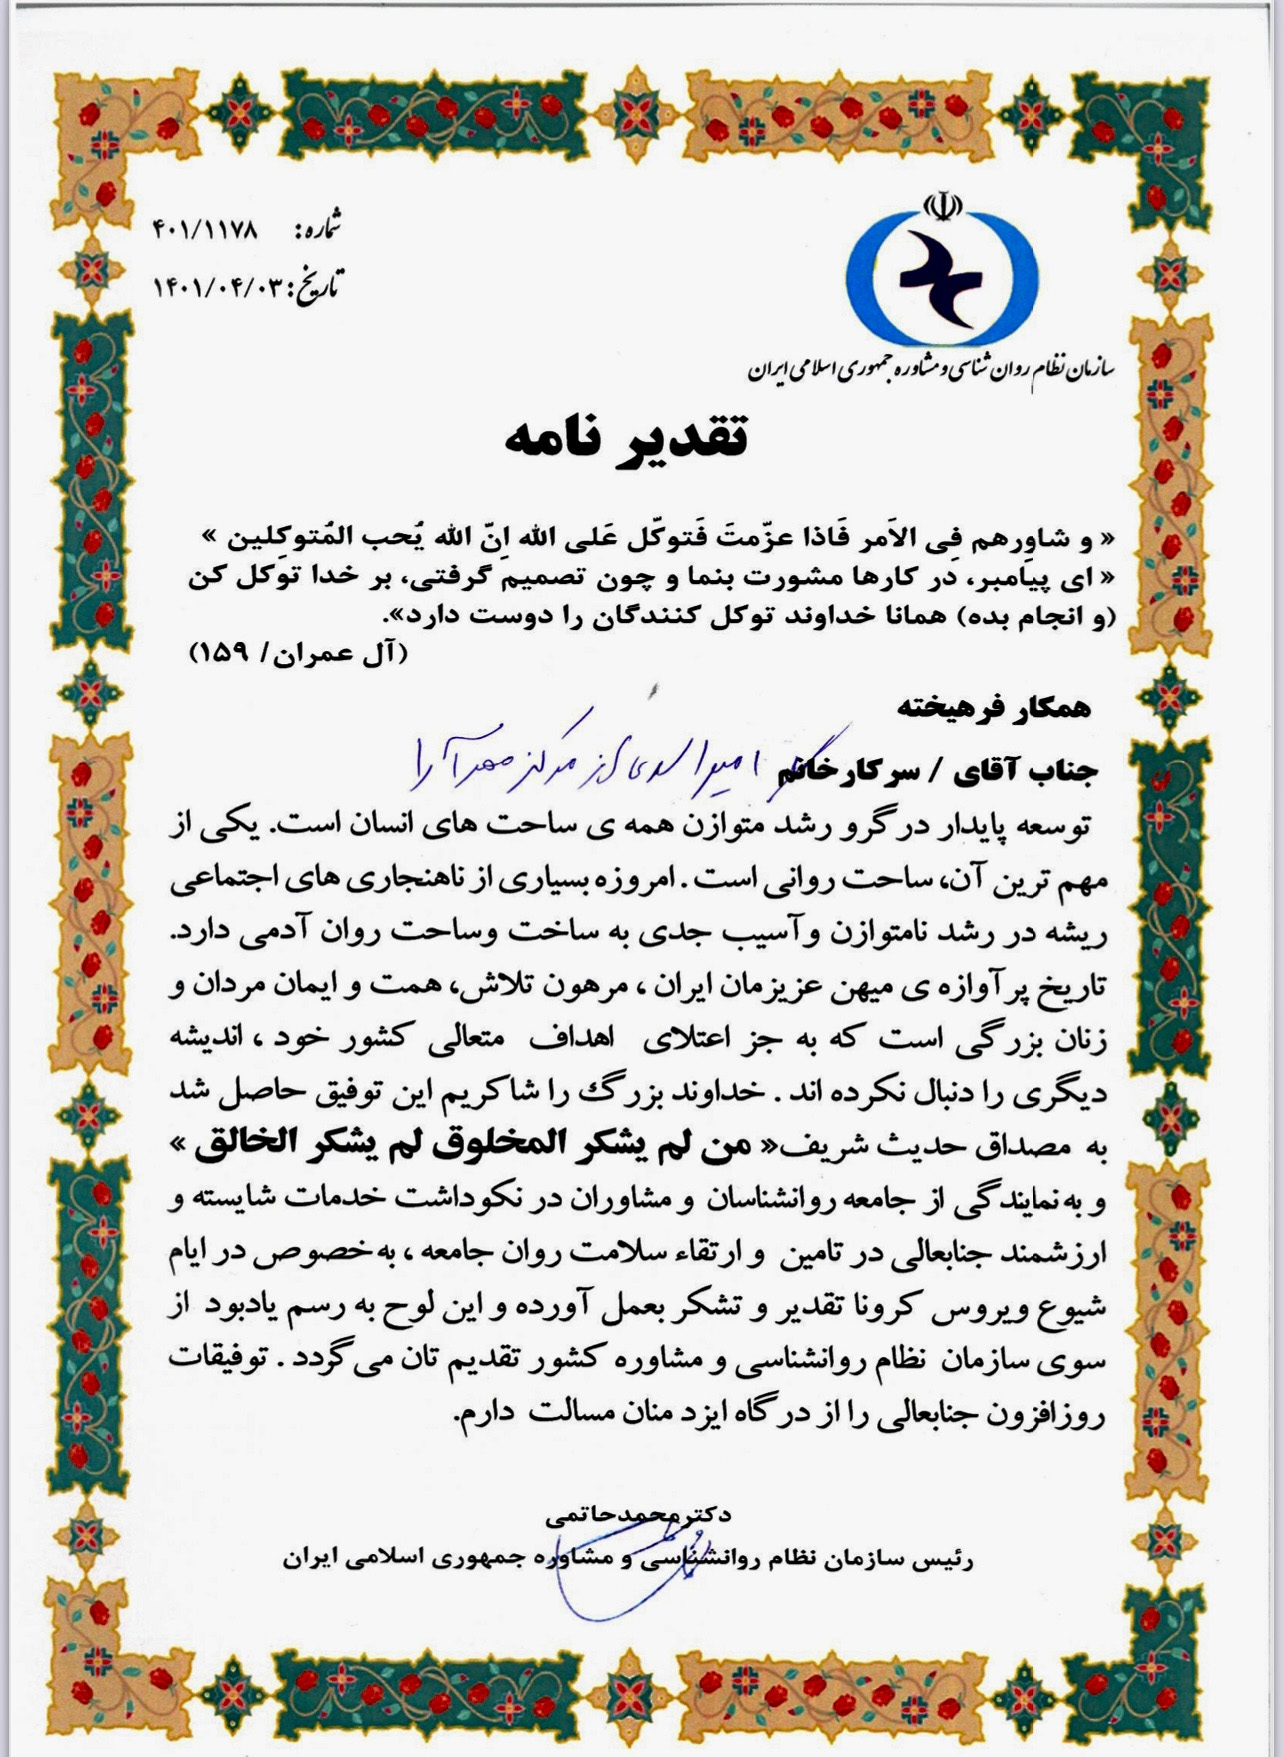 شماره: ۴۰۱/۱۱۷۸
تاریخ: ۱۴۰۱/۰۴/۰۳
سازمان نظام روان شناسی و مشاوره جمهوری اسلامی ایران
تقدیر نامه
« و شاوِرهم فِی الاَمر فَاذا عزّمتَ فَتوکّل عَلی الله اِنّ الله یُحب المُتوکِلین »
« ای پیامبر، در کارها مشورت بنما و چون تصمیم گرفتی، بر خدا توکل کن
(و انجام بده) همانا خداوند توکل کنندگان را دوست دارد».
(آل عمران/ ۱۵۹)
همکار فرهیخته
جناب آقای / سرکارخانم از مرکز مهرآرا
توسعه پایدار در گرو رشد متوازن همه ی ساحت های انسان است. یکی از
مهم ترین آن، ساحت روانی است. امروزه بسیاری از ناهنجاری های اجتماعی
ریشه در رشد نامتوازن وآسیب جدی به ساخت وساحت روان آدمی دارد.
تاریخ پر آوازه ی میهن عزیزمان ایران ، مرهون تلاش، همت و ایمان مردان و
زنان بزرگی است که به جز اعتلای اهداف متعالی کشور خود ، اندیشه
دیگری را دنبال نکرده اند . خداوند بزرگ را شاکریم این توفیق حاصل شد
به مصداق حدیث شریف« من لم یشکر المخلوق لم یشکر الخالق »
و به نمایندگی از جامعه روانشناسان و مشاوران در نکوداشت خدمات شایسته و
ارزشمند جنابعالی در تامین و ارتقاء سلامت روان جامعه ، به خصوص در ایام
شیوع ویروس کرونا تقدیر و تشکر بعمل آورده و این لوح به رسم یادبود از
سوی سازمان نظام روانشناسی و مشاوره کشور تقدیم تان می گردد . توفیقات
روزافزون جنابعالی را از درگاه ایزد منان مسالت دارم.
دکترمحمدحاتمی
رئیس سازمان نظام روانشناسی و مشاوره جمهوری اسلامی ایران